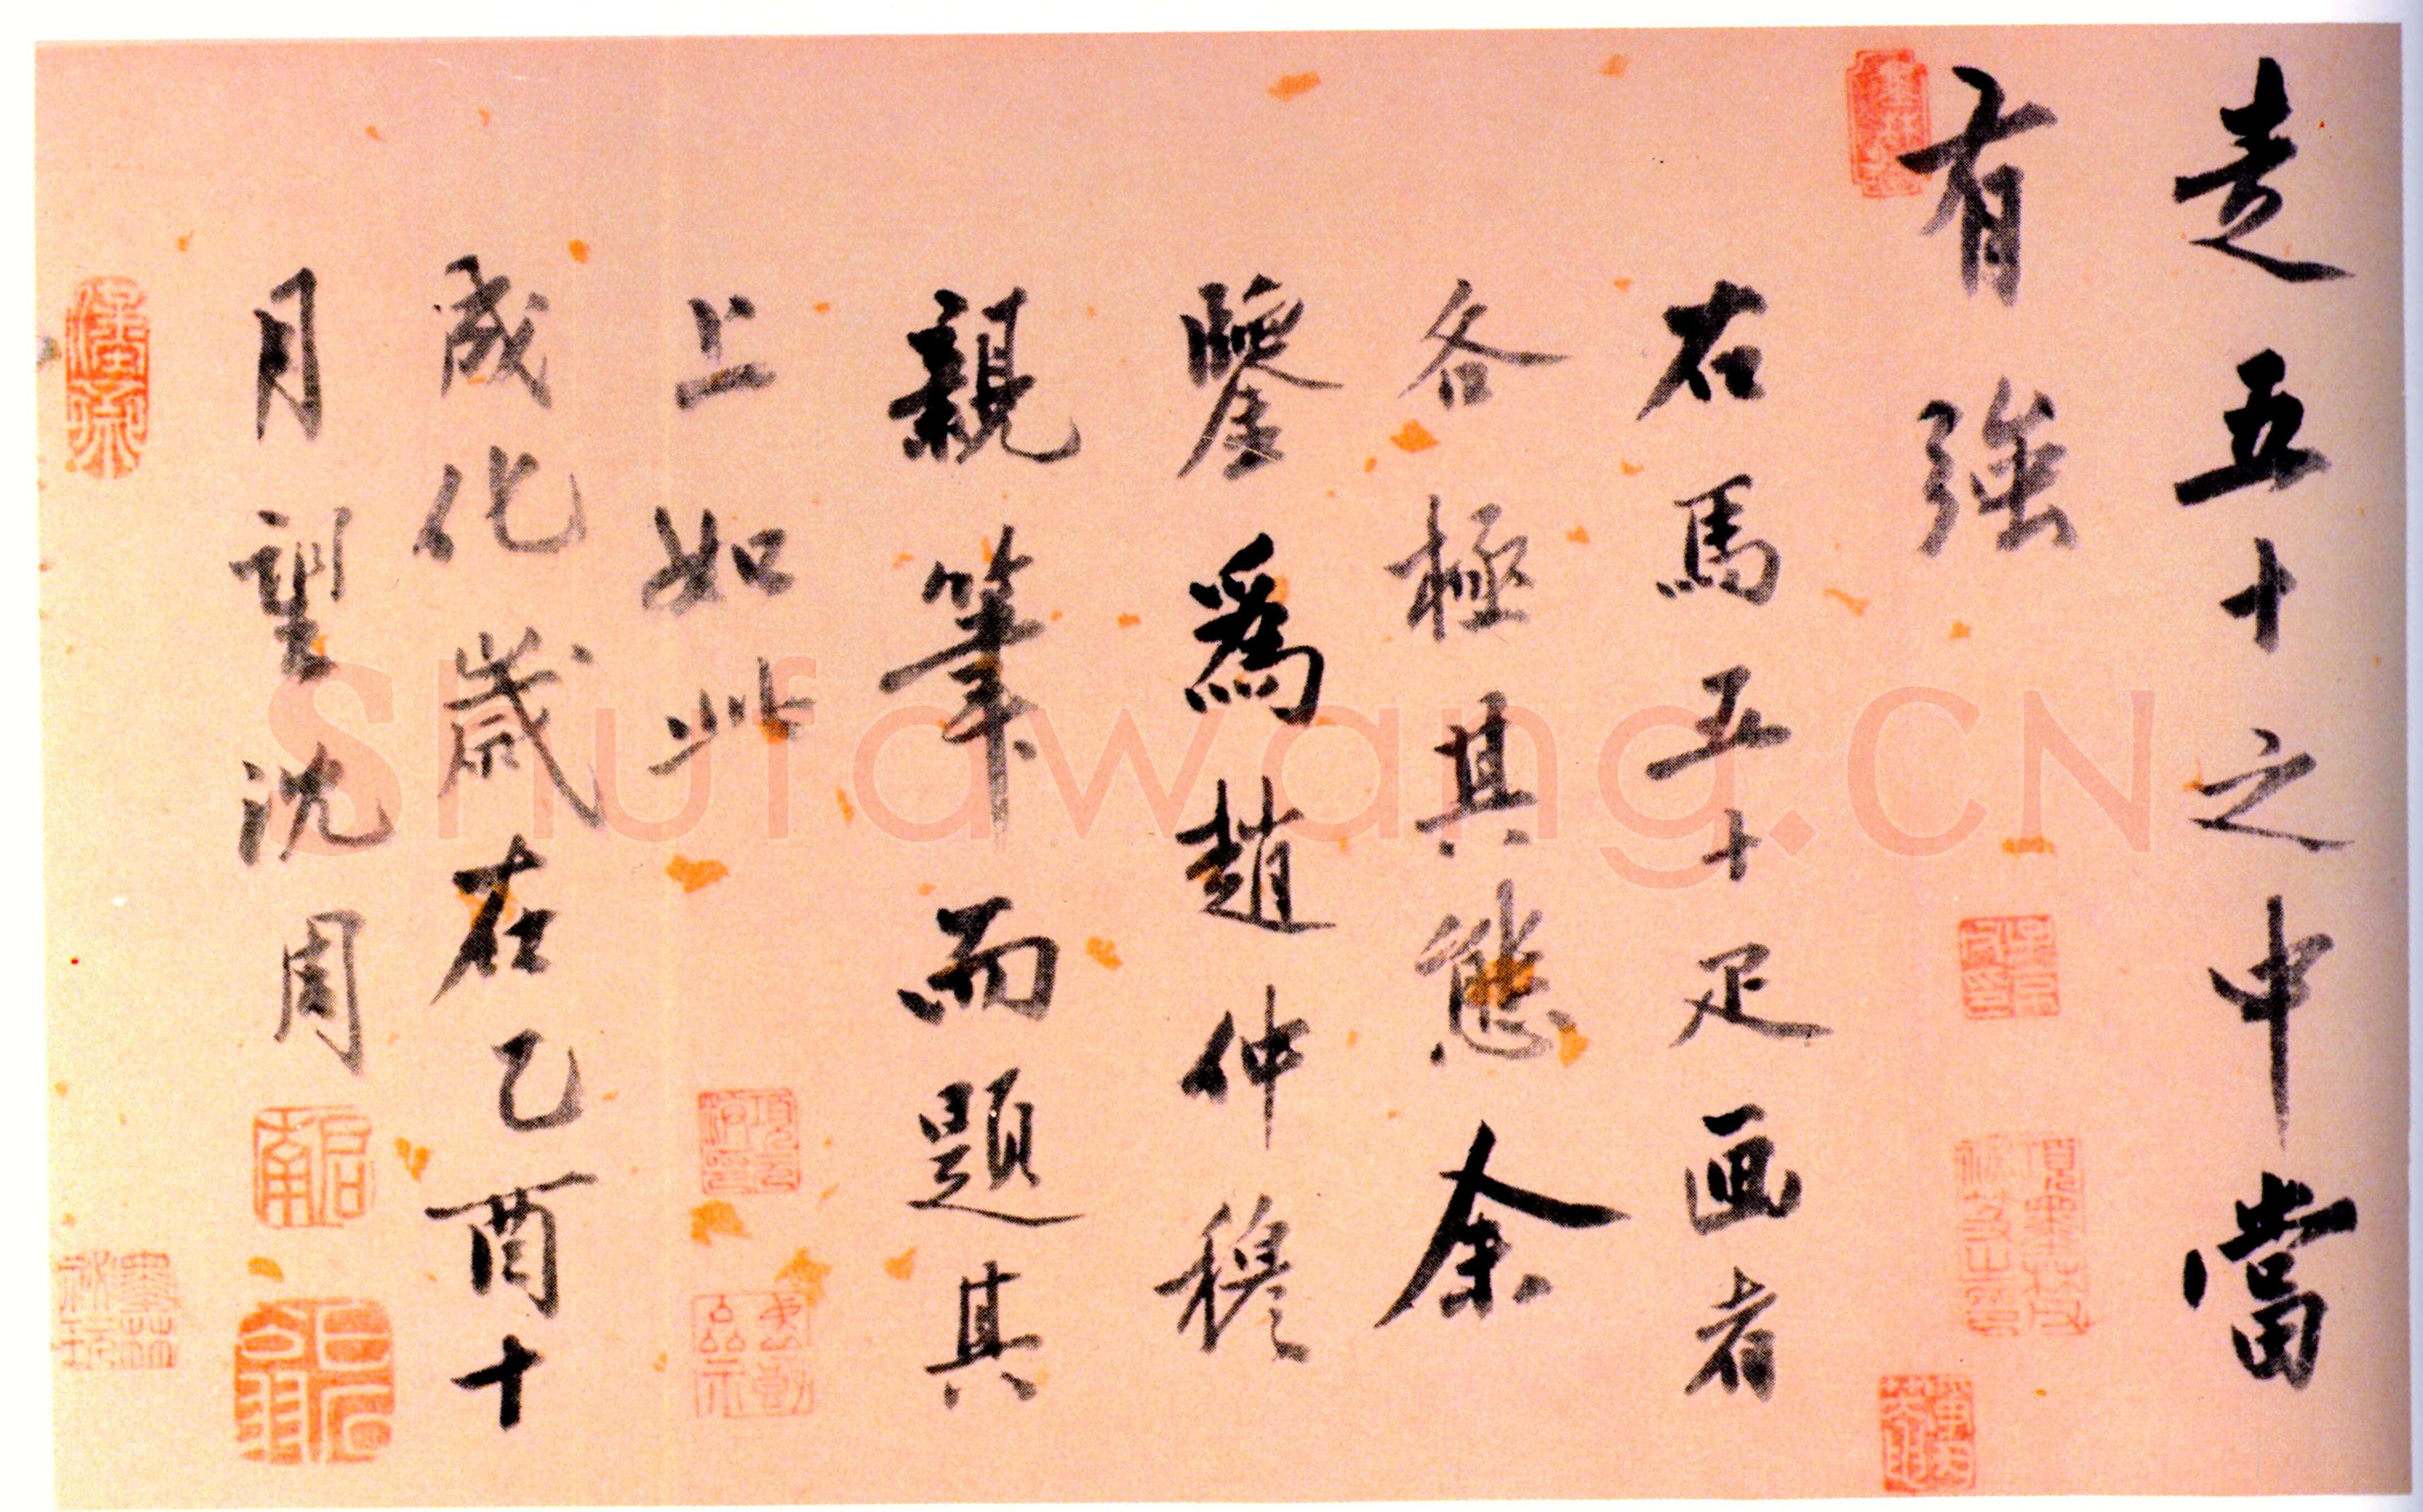 走五十之中當
有強
右馬五十疋画者
各極其態余
鑒為趙仲穆
親筆而題其
上如此
成化歲在乙酉十
月望沈周
Shufawang.CN